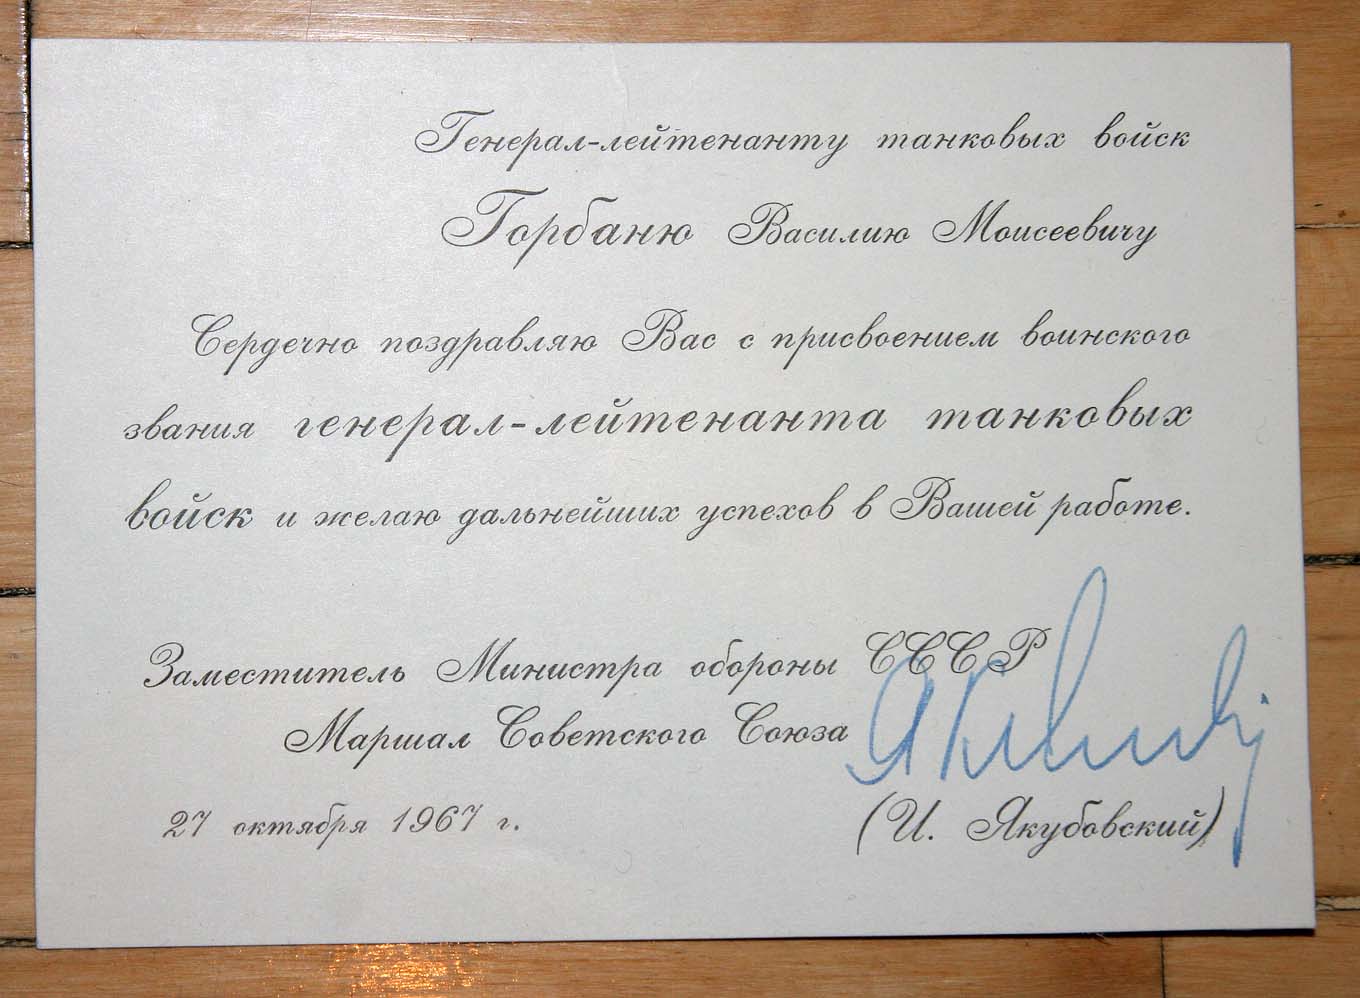 Генерал-лейтенанту танковых войск
Горбаню Василию Моисеевичу
Сердечно поздравляю Вас с присвоением воинского
звания генерал-лейтенанта танковых
войск и желаю дальнейших успехов в Вашей работе.
Заместитель Министра обороны СССР
Маршал Советского Союза
(И. Якубовский)
27 октября 1967 г.